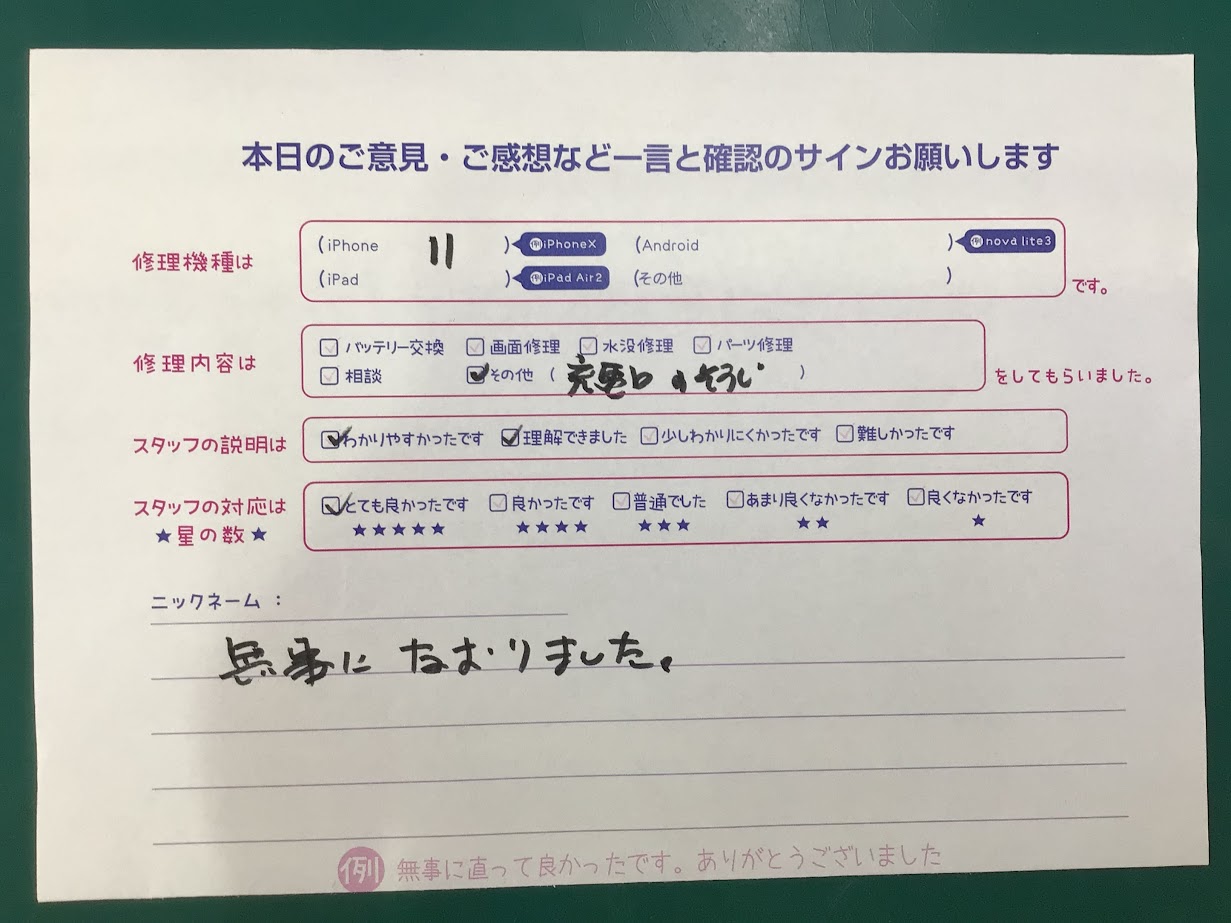 本日のご意見・ご感想など一言と確認のサインお願いします
修理機種は
(iPhone 11 ) 例iPhoneX (Android ) 例nova lite3
(iPad ) 例iPad Air2 (その他 ) です。
修理内容は
バッテリー交換 画面修理 水没修理 パーツ修理
相談 その他 ( 充電口のそうじ ) をしてもらいました。
スタッフの説明は わかりやすかったです 理解できました 少しわかりにくかったです 難しかったです
スタッフの対応は とても良かったです 良かったです 普通でした あまり良くなかったです 良くなかったです
★星の数★ ★★★★★ ★★★★ ★★★ ★★ ★
ニックネーム：
無事になおりました。
例 無事に直って良かったです。ありがとうございました